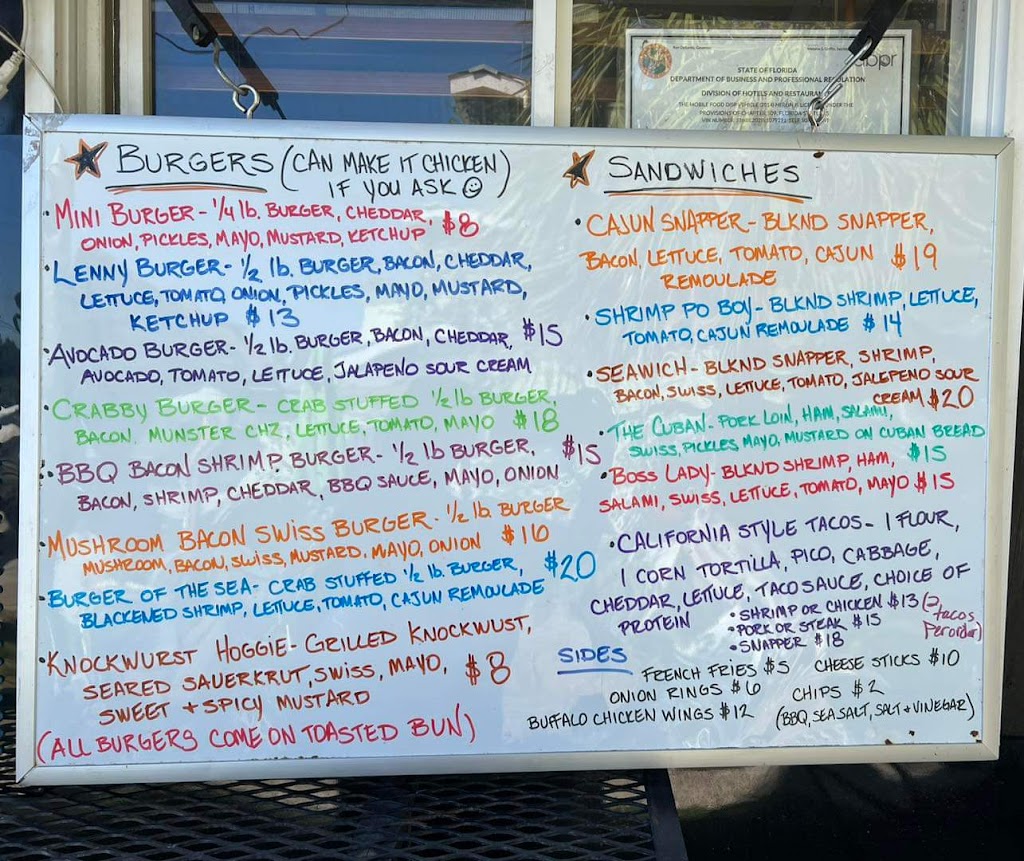 STATE OF FLORIDA
DEPARTMENT OF BUSINESS AND PROFESSIONAL REGULATION
DIVISION OF HOTELS AND RESTAURANTS
dbpr
BURGERS (CAN MAKE IT CHICKEN
IF YOU ASK ☺)
• MINI BURGER - 1/4 lb. BURGER, CHEDDAR,
ONION, PICKLES, MAYO, MUSTARD, KETCHUP $8
• LENNY BURGER - 1/2 lb. BURGER, BACON, CHEDDAR,
LETTUCE, TOMATO, ONION, PICKLES, MAYO, MUSTARD,
KETCHUP $13
• AVOCADO BURGER - 1/2 lb. BURGER, BACON, CHEDDAR, $15
AVOCADO, TOMATO, LETTUCE, JALAPEÑO SOUR CREAM
• CRABBY BURGER - CRAB STUFFED 1/2 lb BURGER,
BACON, MUNSTER CHZ, LETTUCE, TOMATO, MAYO $18
• BBQ BACON SHRIMP BURGER - 1/2 lb BURGER, $15
BACON, SHRIMP, CHEDDAR, BBQ SAUCE, MAYO, ONION
• MUSHROOM BACON SWISS BURGER - 1/2 lb. BURGER
MUSHROOM, BACON, SWISS, MUSTARD, MAYO, ONION $16
• BURGER OF THE SEA - CRAB STUFFED 1/2 lb. BURGER, $20
BLACKENED SHRIMP, LETTUCE, TOMATO, CAJUN REMOULADE
• KNOCKWURST HOGGIE - GRILLED KNOCKWUST,
SEARED SAUERKRUT, SWISS, MAYO, $8
SWEET + SPICY MUSTARD
(ALL BURGERS COME ON TOASTED BUN)
SANDWICHES
• CAJUN SNAPPER - BLKND SNAPPER,
BACON, LETTUCE, TOMATO, CAJUN $19
REMOULADE
• SHRIMP PO BOY - BLKND SHRIMP, LETTUCE,
TOMATO, CAJUN REMOULADE $14
• SEAWICH - BLKND SNAPPER, SHRIMP,
BACON, SWISS, LETTUCE, TOMATO, JALEPENO SOUR
CREAM $20
• THE CUBAN - PORK LOIN, HAM, SALAMI,
SWISS, PICKLES, MAYO, MUSTARD ON CUBAN BREAD
$15
• BOSS LADY - BLKND SHRIMP, HAM,
SALAMI, SWISS, LETTUCE, TOMATO, MAYO $15
• CALIFORNIA STYLE TACOS - 1 FLOUR,
1 CORN TORTILLA, PICO, CABBAGE,
CHEDDAR, LETTUCE, TACO SAUCE, CHOICE OF
PROTEIN
• SHRIMP OR CHICKEN $13 (2 tacos
• PORK OR STEAK $15 Per order)
• SNAPPER $18
SIDES
FRENCH FRIES $5 CHEESE STICKS $10
ONION RINGS $6 CHIPS $2
BUFFALO CHICKEN WINGS $12 (BBQ, SEA SALT, SALT + VINEGAR)